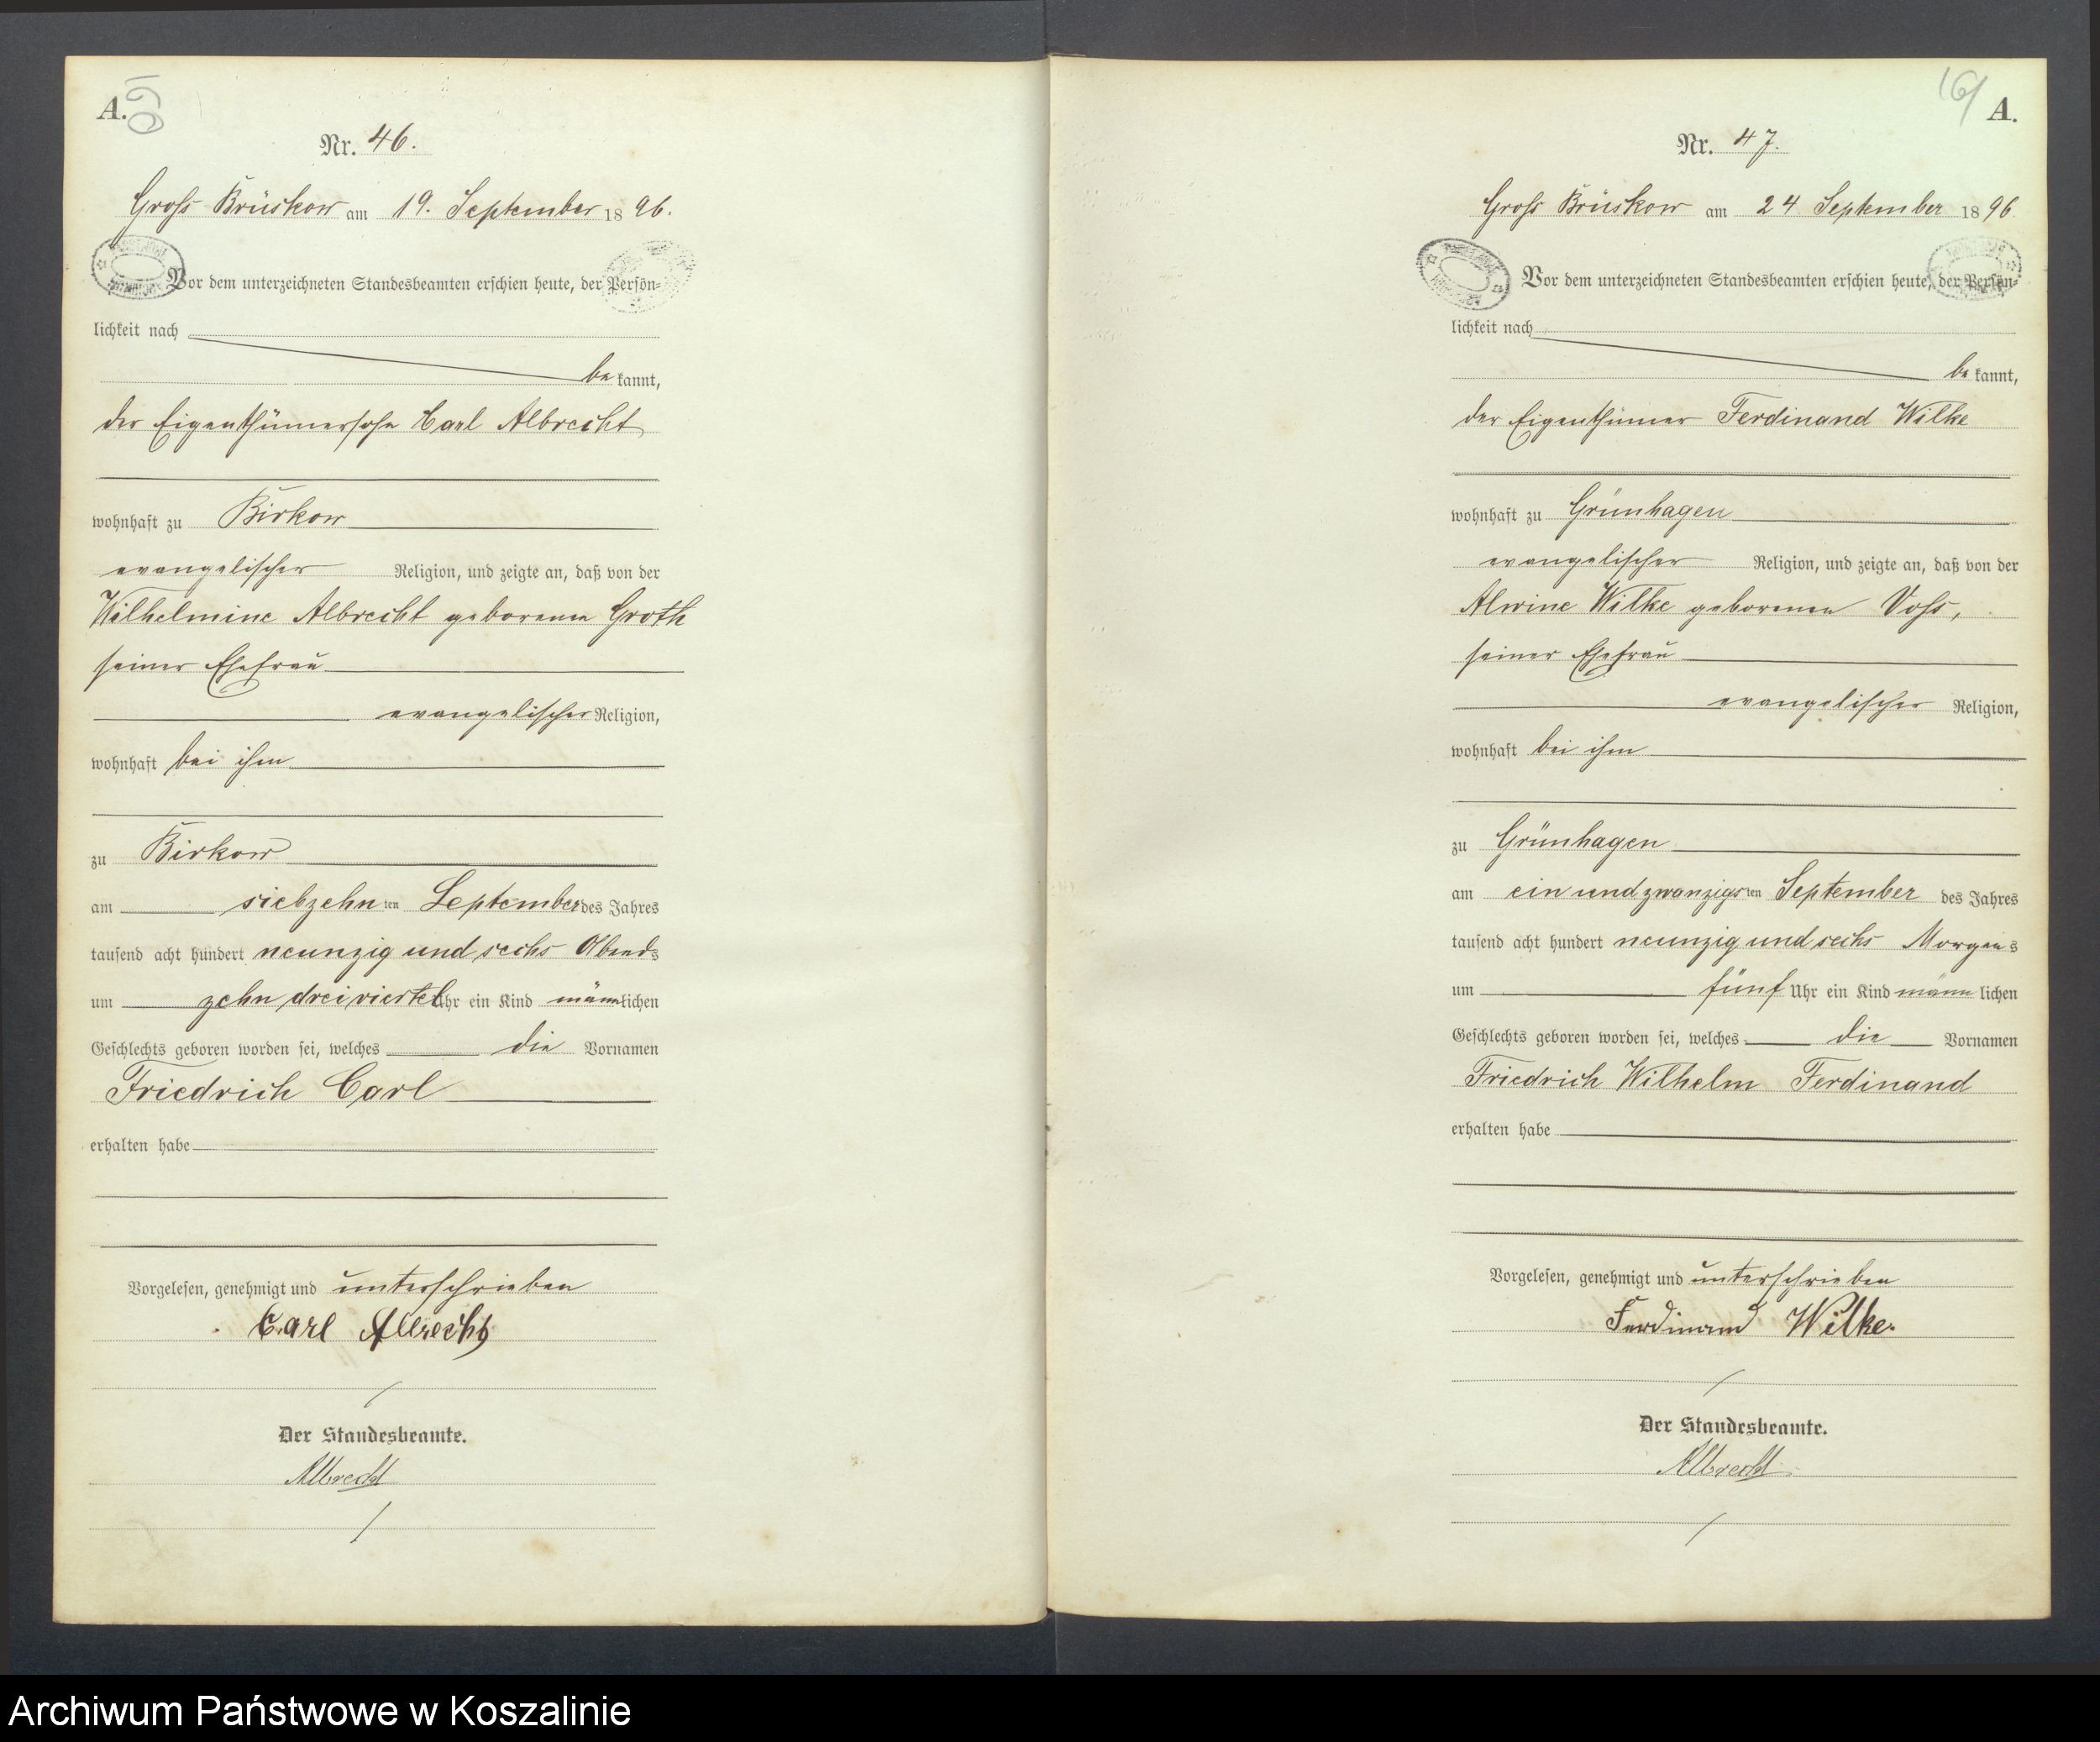 A.
Nr. 46.
Groß Brüskow am 19. September 1896.
Vor dem unterzeichneten Standesbeamten erschien heute, der Persön=
lichkeit nach
be kannt,
der Eigenthümersohn Carl Albrecht
wohnhaft zu Birkow
evangelischer Religion, und zeigte an, daß von der
Wilhelmine Albrecht geborenen Groth
seiner Ehefrau
evangelischer Religion,
wohnhaft bei ihm
zu Birkow
am siebzehn ten September des Jahres
tausend acht hundert neunzig und sechs Abends
um zehn dreiviertel Uhr ein Kind männlichen
Geschlechts geboren worden sei, welches die Vornamen
Friedrich Carl
erhalten habe
Vorgelesen, genehmigt und unterschrieben
Carl Albrecht
Der Standesbeamte.
Albrecht
A.
Nr. 47.
Groß Brüskow am 24 September 1896
Vor dem unterzeichneten Standesbeamten erschien heute, der Persön=
lichkeit nach
be kannt,
der Eigenthümer Ferdinand Wilke
wohnhaft zu Grünhagen
evangelischer Religion, und zeigte an, daß von der
Alwine Wilke geborenen Voß,
seiner Ehefrau
evangelischer Religion,
wohnhaft bei ihm
zu Grünhagen
am ein und zwanzigsten September des Jahres
tausend acht hundert neunzig und sechs Morgens
um fünf Uhr ein Kind männ lichen
Geschlechts geboren worden sei, welches die Vornamen
Friedrich Wilhelm Ferdinand
erhalten habe
Vorgelesen, genehmigt und unterschrieben
Ferdinand Wilke.
Der Standesbeamte.
Albrecht
Archiwum Państwowe w Koszalinie